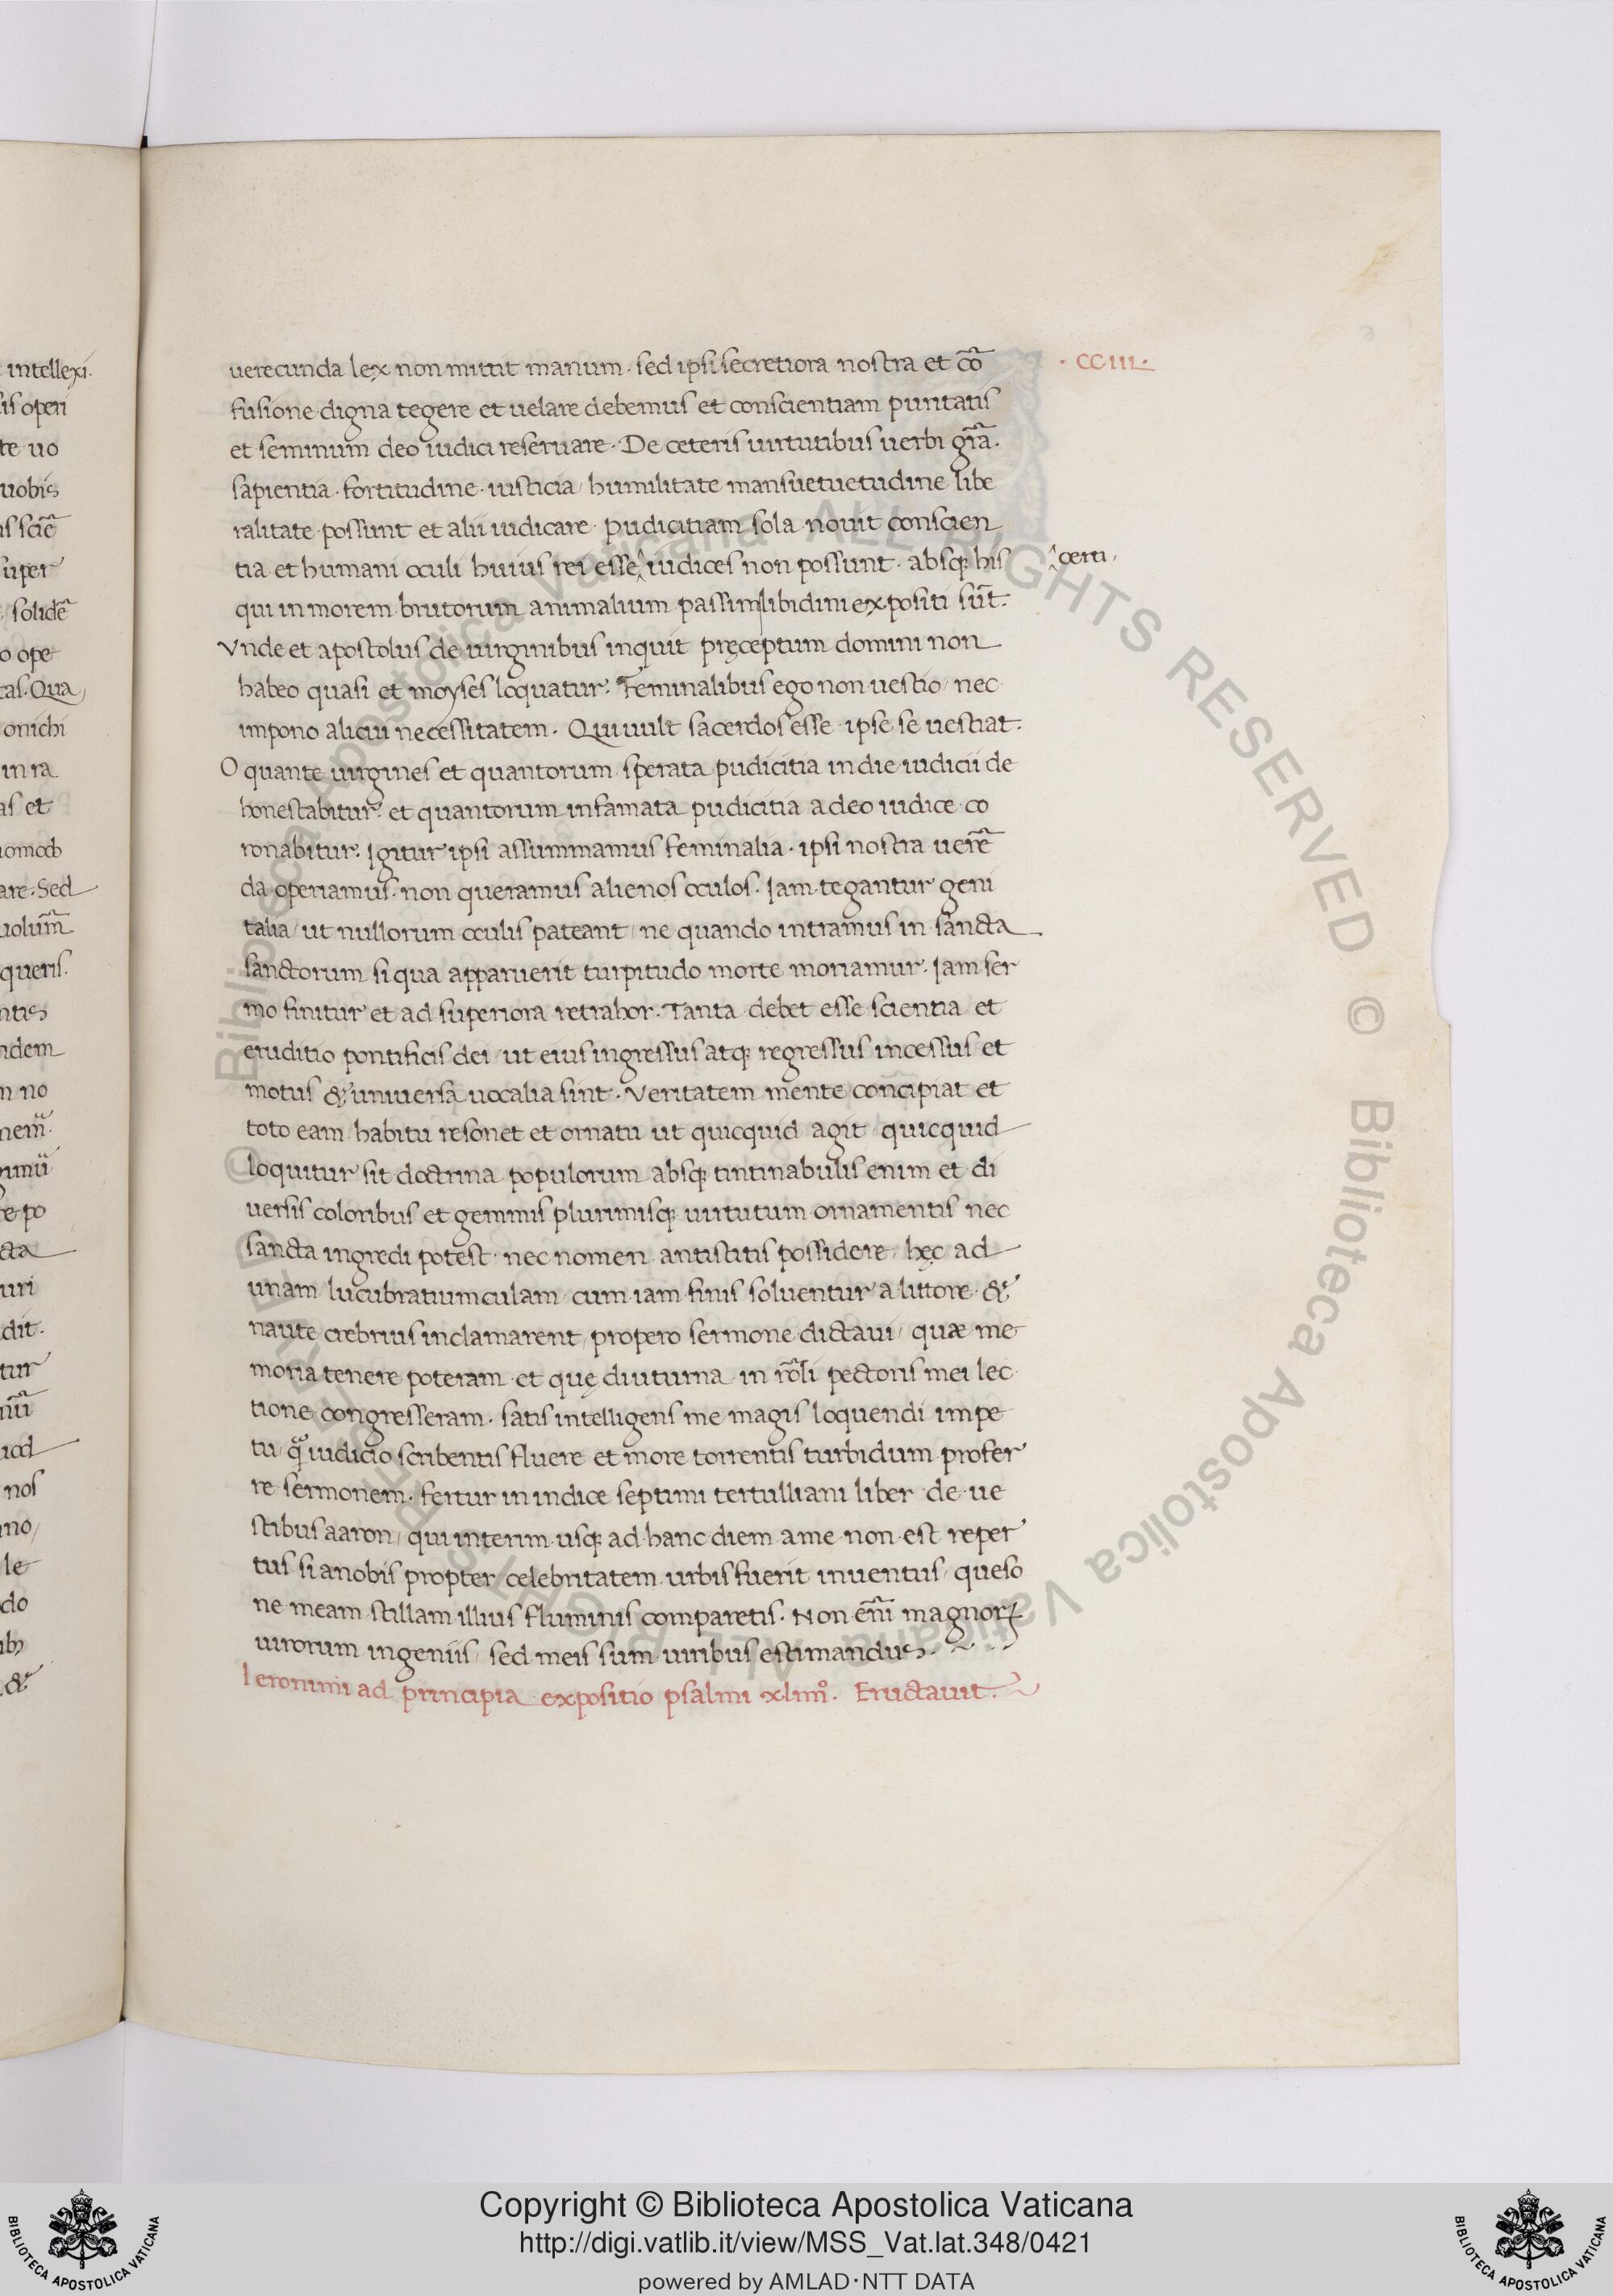 uerecunda lex non mittit manum · sed ipsi secretiora nostra et cõ
fusione digna tegere et uelare debemus et conscientiam puritatis
et seminum deo iudici reseruare · De ceteris uirtutibus uerbi gr̃a.
sapientia · fortitudine · iusticia / humilitate mansuetuetudine libe
ralitate possunt et alii iudicare · pudicitiam sola nouit conscien
tia et humani oculi huius rei esse ^ iudices non possunt · absq; his
qui in morem brutorum animalium passim libidini expositi sũt.
Vnde et apostolus de uirginibus inquit pręceptum domini non
habeo quasi et moyses loquatur. Feminalibus ego non uestio / nec
impono alicui necessitatem. Qui uult sacerdos esse ipse se uestiat.
O quante uirgines et quantorum sperata pudicitia in die iudicii de
honestabitur. et quantorum infamata pudicitia a deo iudice co
ronabitur. Igitur ipsi assummamus feminalia · ipsi nostra uerẽ
da operiamus. non queramus alienos oculos. Iam tegantur geni
talia / ut nullorum oculis pateant / ne quando intramus in sancta
sanctorum si qua apparuerit turpitudo morte moriamur. Iam ser
mo finitur et ad superiora retrahor. Tanta debet esse scientia et
eruditio pontificis dei / ut eius ingressus atq; regressus incessus et
motus & uniuersa uocalia sint. Veritatem mente concipiat et
toto eam habitu resonet et ornatu ut quicquid agit quicquid
loquitur sit doctrina populorum absq; tintinabulis enim et di
uersis coloribus et gemmis plurimisq; uirtutum ornamentis nec
sancta ingredi potest · nec nomen antistitis possidere / hęc ad
unam lucubratiumculam / cum iam finis soluentur a littore &
naute crebrius inclamarent / propero sermone dictaui / quæ me
moria tenere poteram et quę diuturna in rõli pectoris mei lec
tione congresseram. satis intelligens me magis loquendi impe
tu / q̃ iudicio scribentis fluere et more torrentis turbidum profer
re sermonem. fertur in indice septimi tertulliani liber de ue
stibus aaron / qui interim usq; ad hanc diem a me non est reper
tus si a nobis propter celebritatem urbis fuerit inuentus / queso
ne meam stillam illius fluminis comparetis. Non eñi magnorꝝ
uirorum ingeniis / sed meis sum uiribus estimandus.
Ieronimi ad principia expositio psalmi xliiii°. Eructauit.
· CCIII ·
^ certi ·
intellexi.
is operi
te uo
uobis
s sciẽ
super
solidẽ
o ope
tas. Qua
onichi
in ra
as et
uomodo
are. Sed
uolum̃
queris.
ntis
ndem
n no
po
cta
uri
dit.
tur
uod
nos
no/
le
do
&
© Biblioteca Apostolica Vaticana ALL RIGHTS RESERVED © Biblioteca Apostolica Vaticana ALL RIGHTS RESERVED
Copyright © Biblioteca Apostolica Vaticana
http://digi.vatlib.it/view/MSS_Vat.lat.348/0421
powered by AMLAD·NTT DATA
BIBLIOTECA APOSTOLICA VATICANA
BIBLIOTECA APOSTOLICA VATICANA